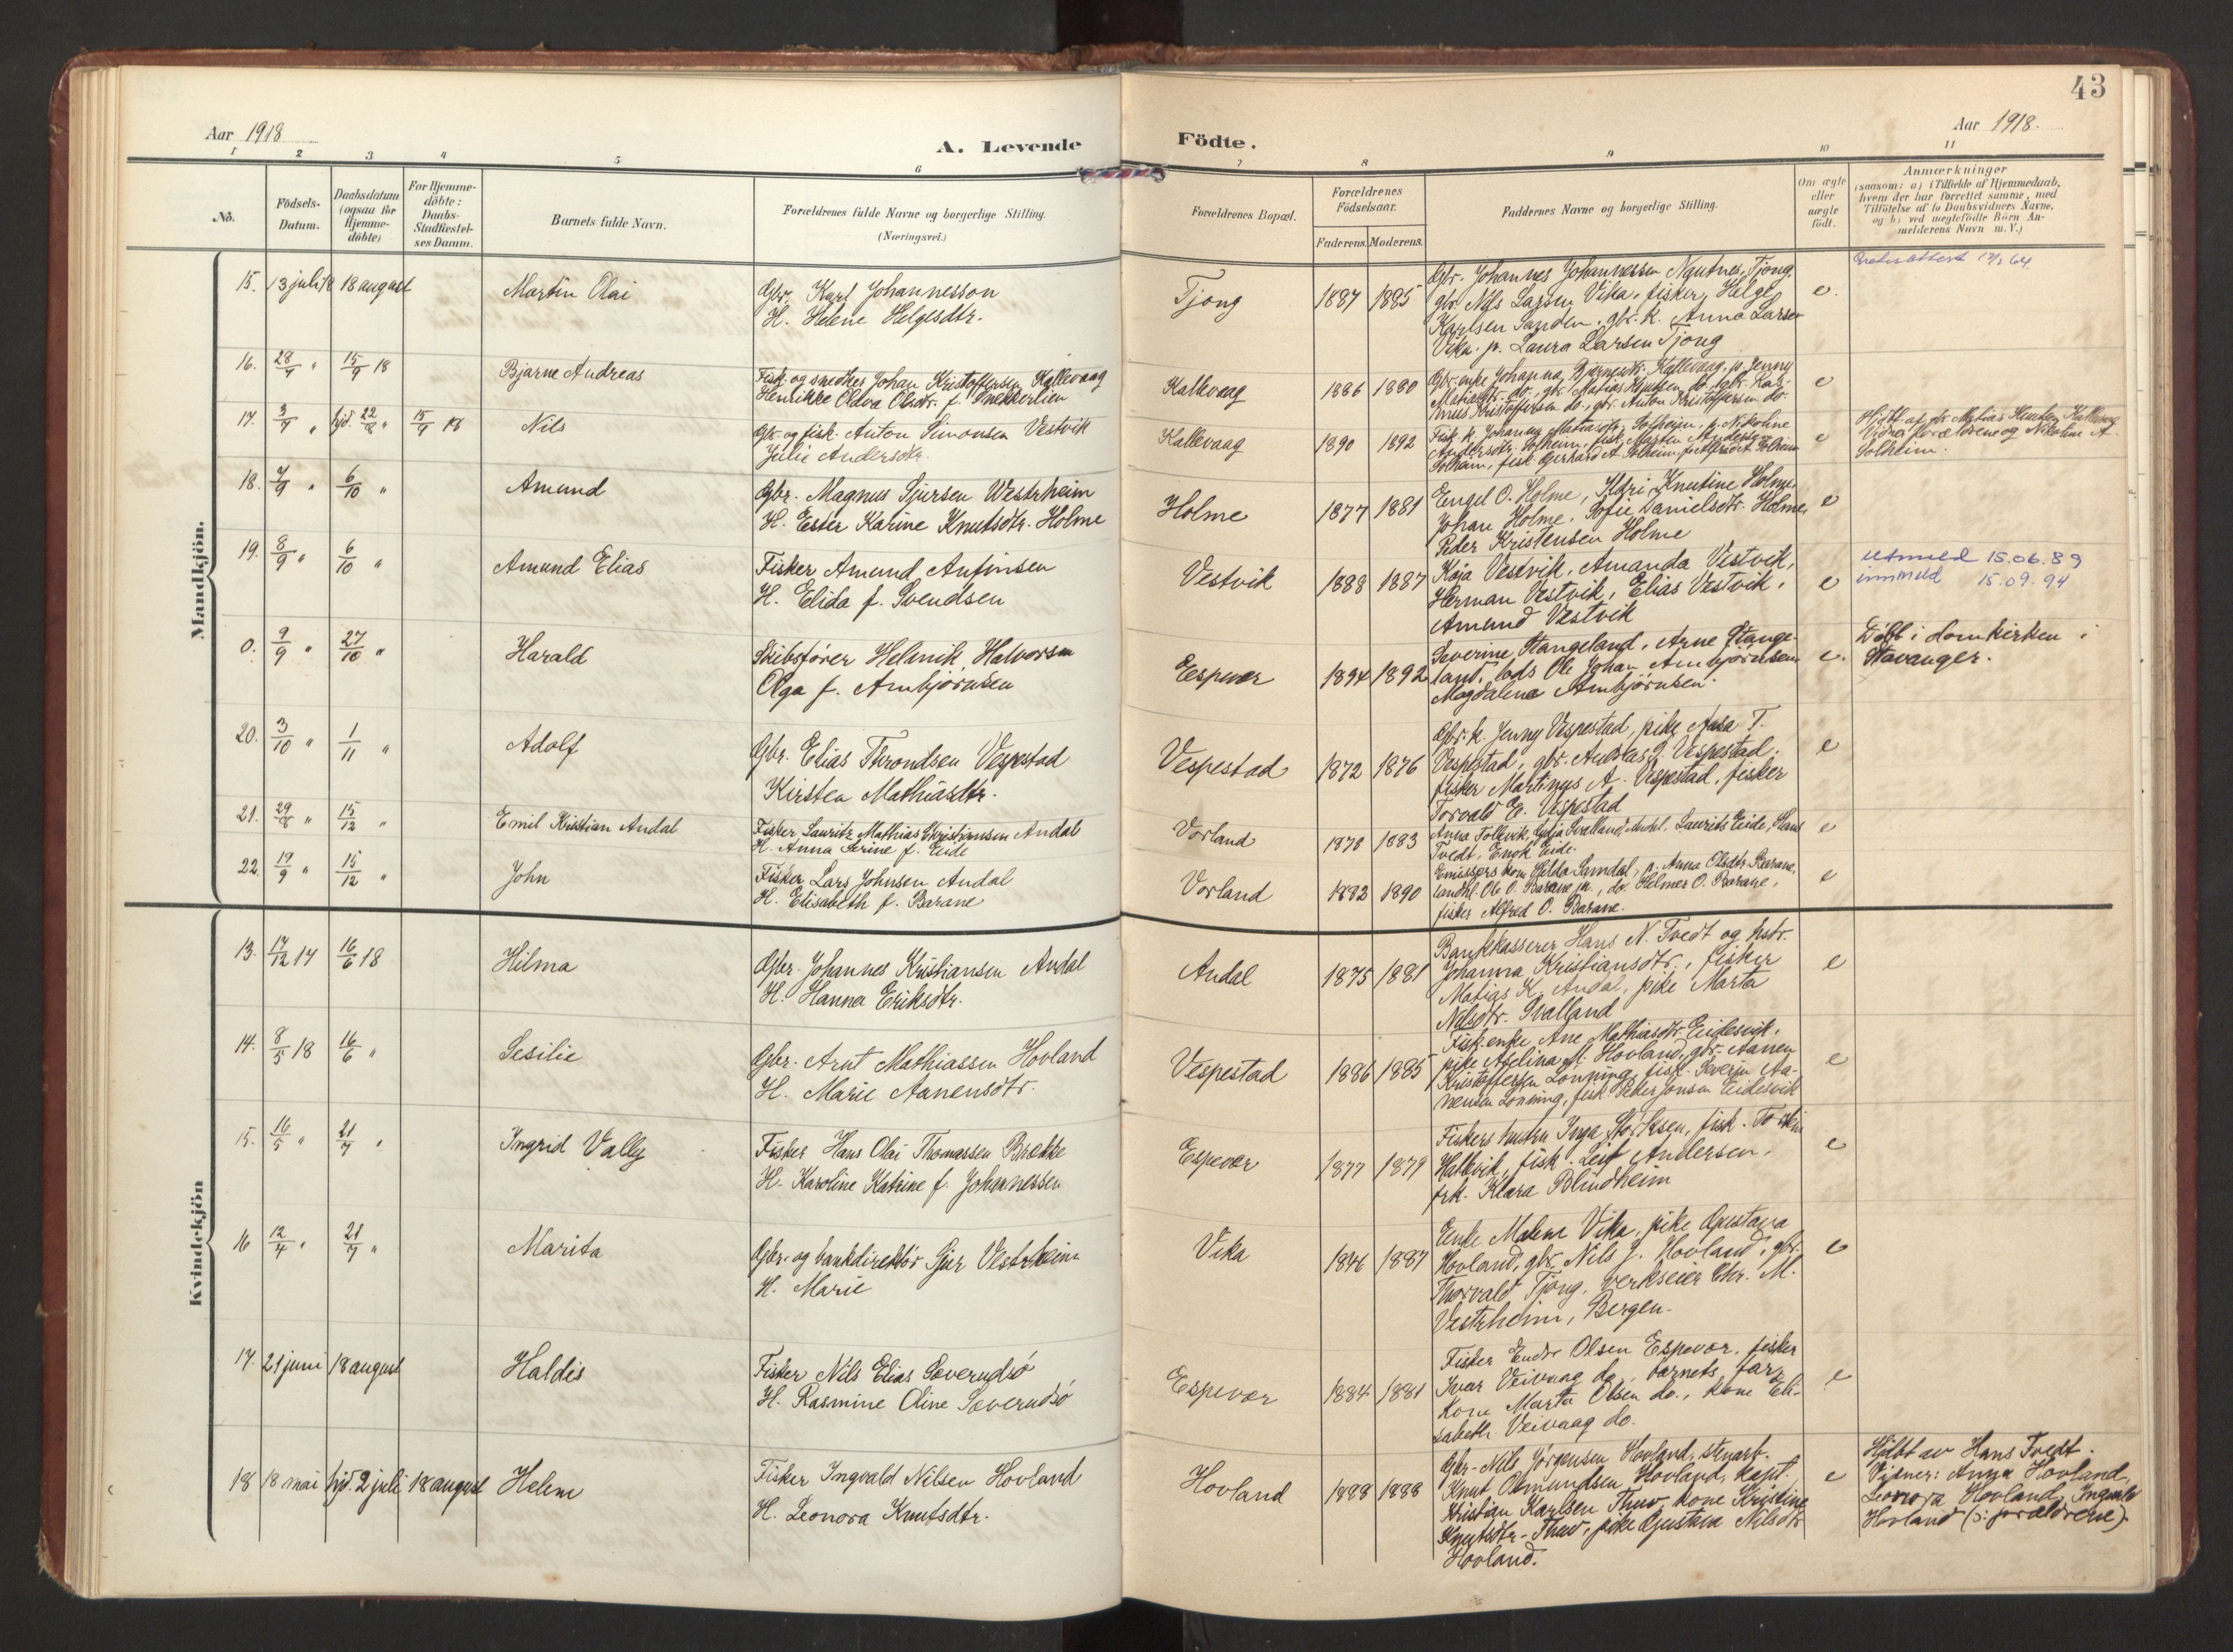 43
Aar 1918
A. Levende
Födte.
Aar 1918.
1 2 3 4 5 6 7 8 9 10 11
Nö.
Födsels-Datum.
Daabsdatum (ogsaa for Hjemme-döbte)
For Hjemme-döbte: Daabs-Stadfæstel-ses Datum.
Barnets fulde Navn.
Forældrenes fulde Navne og borgerlige Stilling.
(Næringsvei.)
Forældrenes Bopæl.
Forældrenes Födselsaar.
Faderens. Moderens.
Faddernes Navne og borgerlige Stilling.
Om ægte eller uægte födt.
Anmærkninger
(saasom: a) i Tilfælde af Hjemmedaab,
hvem der har forrettet samme, med
Tilföielse af to Daabsvidners Navne,
og b) ved uegtefödte Börn An-
melderens Navn m. V.)
Mandkjön.
15. 13 juli 18 18 august
Martin Olai
Gbr. Karl Johannesson
H. Helene Helgesdtr.
Tjong
1887 1885
Gbr. Johannes Johannessen Nautnes, Tjong,
gbr. Nils Larsen Vika, fisker Helge
Karlsen Sanden, gbr. k. Anna Larsen
Vika. p. Laura Larsen Tjong
e.
16. 28/7 " 15/9 18
Bjarne Andreas
Fisk. og snedker Johan Kristoffersen Kallevaag
Henrikke Oldva Olsdtr. f.
Kallevaag
1886 1880
Gbr. enke Johanna Bjarnesdtr. Kallevaag, p. Jenny
Matiasdtr. do., gbr. Matias Knutsen do., gbr. Ras-
mus Kristoffersen do., gbr. Anton Kristoffersen do.
e
17. 3/7 " hjd. 22/8 " 15/9 18
Nils
Gbr. og fisk. Anton Simonsen Vestvik
Julie Andersdtr.
Kallevaag
1890 1892
Fisk. k. Johanna Matiasdtr. Solheim, p. Nikoline
Andersdtr. Solheim, fisk. Marten Andersen
Solheim, fisk Gerhard A. Solheim, fo Alfred A. Solheim
e
Hjdbt af gbr. Matias Knutsen Kallevaag
Vidner forældrene og Nikoline A.
Solheim.
18. 7/9 " 6/10 "
Amund
Gbr. Magnus Sjursen Westrheim
H. Ester Karine Knutsdtr. Holme
Holme
1877 1881
Engel O. Holme, Ildri Knutine Holme,
Johan Holme. Sofie Danielsdtr. Holme,
Peder Kristensen Holme
e
19. 8/9 " 6/10 "
Amund Elias
Fisker Amund Anfinsen
H. Elida f. Svendsen
Vestvik
1888 1887
Kaja Vestvik, Amanda Vestvik,
Herman Vestvik, Elias Vestvik,
Amund Vestvik
e
utmeld 15.06.89
innmeld 15.09.94
0. 9/9 " 27/10 "
Harald
Skibsfører Helmik Halvorsen
Olga f. Ambjørnsen
Espevær
1894 1892
Severine Stangeland, Arne Stange-
land, lods Ole Johan Ambjørnsen
Magdalena Ambjörnsen.
e.
Döbt i domkirken i
Stavanger.
20. 3/10 " 1/11 "
Adolf
Gbr. Elias Throndsen Vespestad
Kirsten Mathiasdtr.
Vespestad
1872 1876
Gbr. k. Jenny Vespestad, pike Aasa T.
Vespestad, gbr. Andreas J. Vespestad.
fisker Martinus A. Vespestad, fisker
Torvald E. Vespestad
e
21. 29/8 " 15/12 "
Emil Kristian Andal
Fisker Lauritz Mathias Christiansen Andal
H. Anna Serine f. Eide
Vorland
1878 1883
Anna Follevik, Lydja Svalland, Laurits Eide, Hans
Tvedt, Enok Eide.
e
22. 19/9 " 15/12 "
John
Fisker Lars Johnsen Andal
H. Elisabeth f. Barane
Vorland
1882 1890
Emissærs kone Hilda Samdal, p. Anna Olsdtr. Barane,
landhl. Ole O. Barane jr., do. Helmer O. Barane,
fisker Alfred O. Barane.
e
Kvindekjön
13. 17/12 17 16/6 18
Hilma
Gbr. Johannes Kristiansen Andal
H. Hanna Eriksdtr.
Andal
1875 1881
Bankkasserer Hans N. Tvedt og hstr.
Johanna Kristiansdtr., fisker
Matias K. Andal, pike Marta
Nilsdtr. Svalland
e
14. 8/5 18 16/6 "
Sesilie
Gbr. Arnt Mathiassen Hovland
H. Marie Aanensdtr.
Vespestad
1886 1885
Fisk. enke Ane Mathiasdtr. Eidesvik,
pike Aselina M. Hovland, gbr. Aanen
Kristoffersen Lönning, fisk. Severin Aa-
nensen Lönning, fisk. Peder Jonsen Eidesvik
e
15. 16/5 " 21/7 "
Ingrid Vally
Fisker Hans Olai Thomassen Brække
H. Karoline Katrine f. Johannessen
Espevær
1877 1879
Fiskers hustru Inga Störksen, fisk.
Hallevik, fisk. Leif Andersen,
frk. Klara Blindheim
e
16 12/4 " 21/7 "
Marita
Gbr. og bankdirektör Sjur Vestrheim
H. Marie
Vika
1846 1887
Enke Malene Vika, pike Gustava
Hovland, gbr. Nils J. Hovland, gbr.
Thorvald Tjong, verkseier Chr. M.
Vestrheim, Bergen.
e
17. 21 juni 18 august
Haldis
Fisker Nils Elias Göverudsö
H. Rasmine Oline Göverudsö
Espevær
1884 1881
Fisker Endre Olsen Espevær, fisker
Ivar Veivaag do., barnets far,
Kone Marta Olsen do., kone Eli-
sabeth Veivaag do.
e
18 18 mai hjd. 2 juli 18 august
Helene
Fisker Ingvald Nilsen Hovland
H. Leonora Knutsdtr.
Hovland
1888 1888
Gbr. Nils Jørgensen Hovland, stenarb.
Knut Osmundsen Hovland, kapt.
Kristian Karlsen Thuv, kone Kristine
Knutsdtr. Thuv, pike Gustava Nilsdtr
Hovland.
e
Hjdbt av Hans Tvedt.
Vidner: Anna Hovland,
Leonora Hovland, Ingvald
Hovland (o: forældrene).